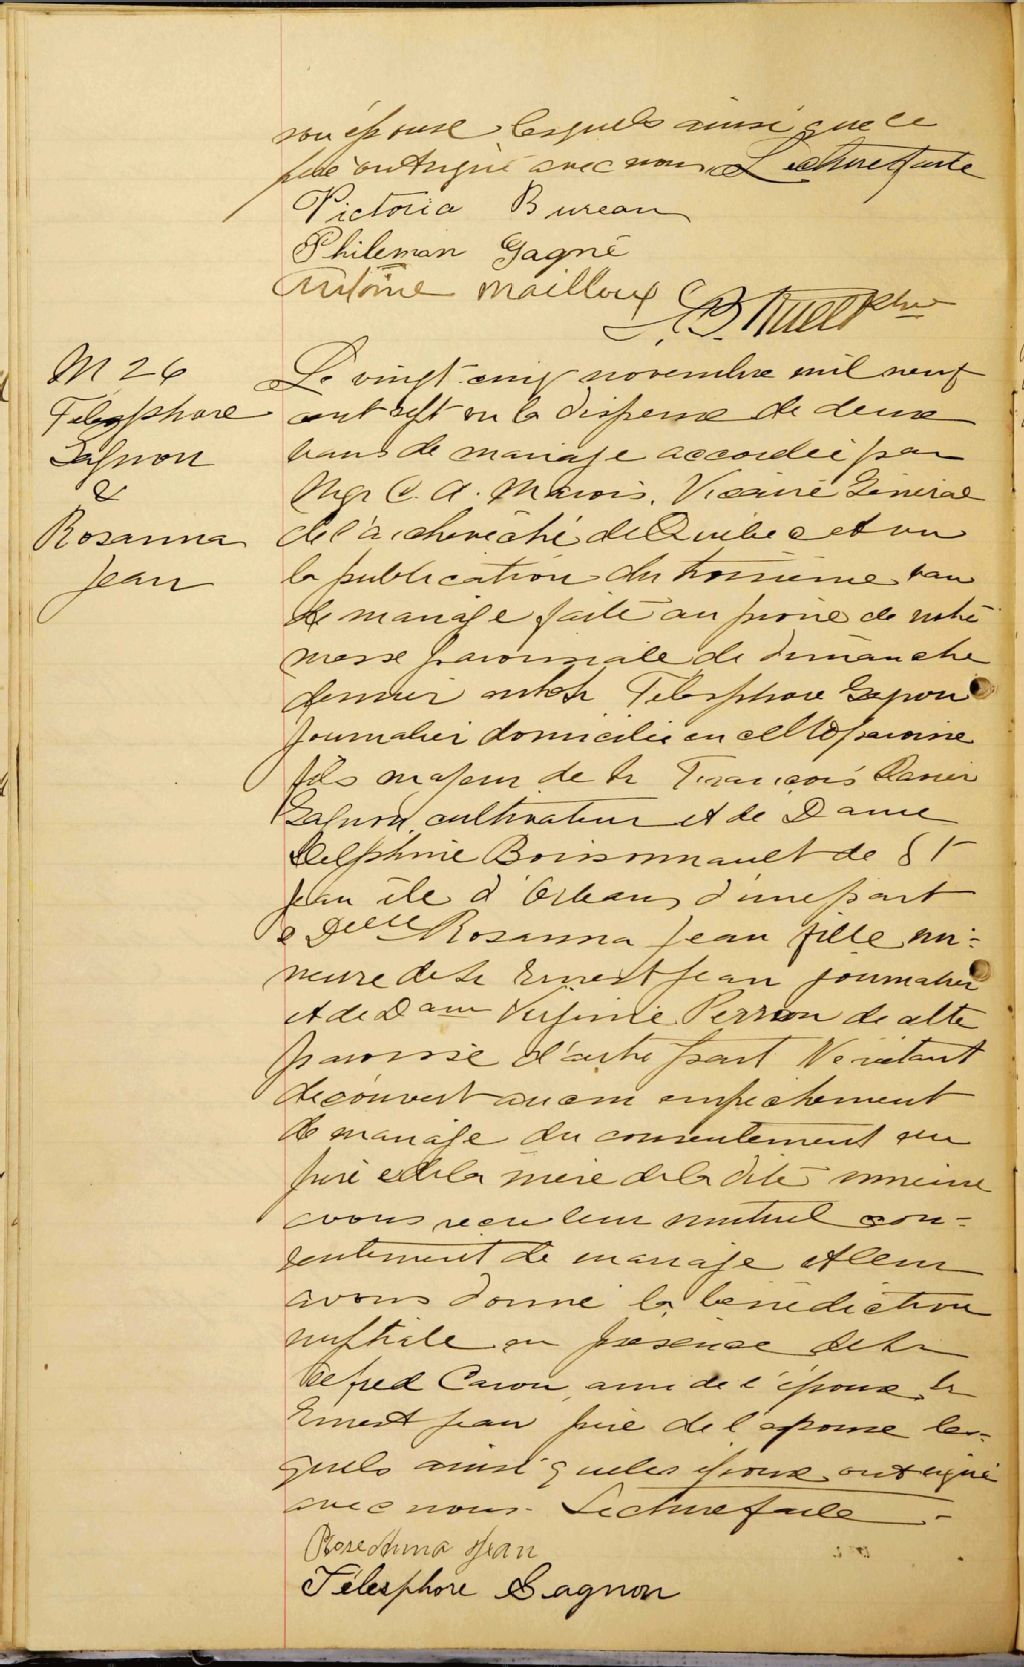 son épouse lesquels ainsi que le
père ont signé avec nous Lecture faite
Victoria Bureau
Philemon Gagné
Antoine Mailloux
Ruel Ptre
M 26
Télesphore
Gagnon
&
Rosanna
Jean
Le vingt cinq novembre mil neuf
cent sept vu la dispense de deux
bans de mariage accordée par
Mgr C. A. Marois, Vicaire Général
de l'archevêché de Québec et vu
la publication du troisième ban
de mariage faite au prône de notre
messe paroissiale de dimanche
dernier entre Sr Télesphore Gagnon
journalier domicilié en cette paroisse
fils majeur de Sr François Xavier
Gagnon, cultivateur et de Dame
Delphine Boissonnault de St
Jean île d'Orléans d'une part
& Delle Rosanna Jean fille mi-
neure de Sr Ernest Jean journalier
et de Dame Virginie Perron de cette
paroisse d'autre part N'ayant
découvert aucun empêchement
de mariage du consentement du
père et de la mère de la dite mineure
avons reçu leur mutuel con-
sentement de mariage et leur
avons donné la bénédiction
nuptiale en présence de Sr
Alfred Caron, ami de l'époux, Sr
Ernest Jean père de l'épouse les-
quels ainsi que les époux ont signé
avec nous. Lecture faite.
Roseanna Jean
Télesphore Gagnon